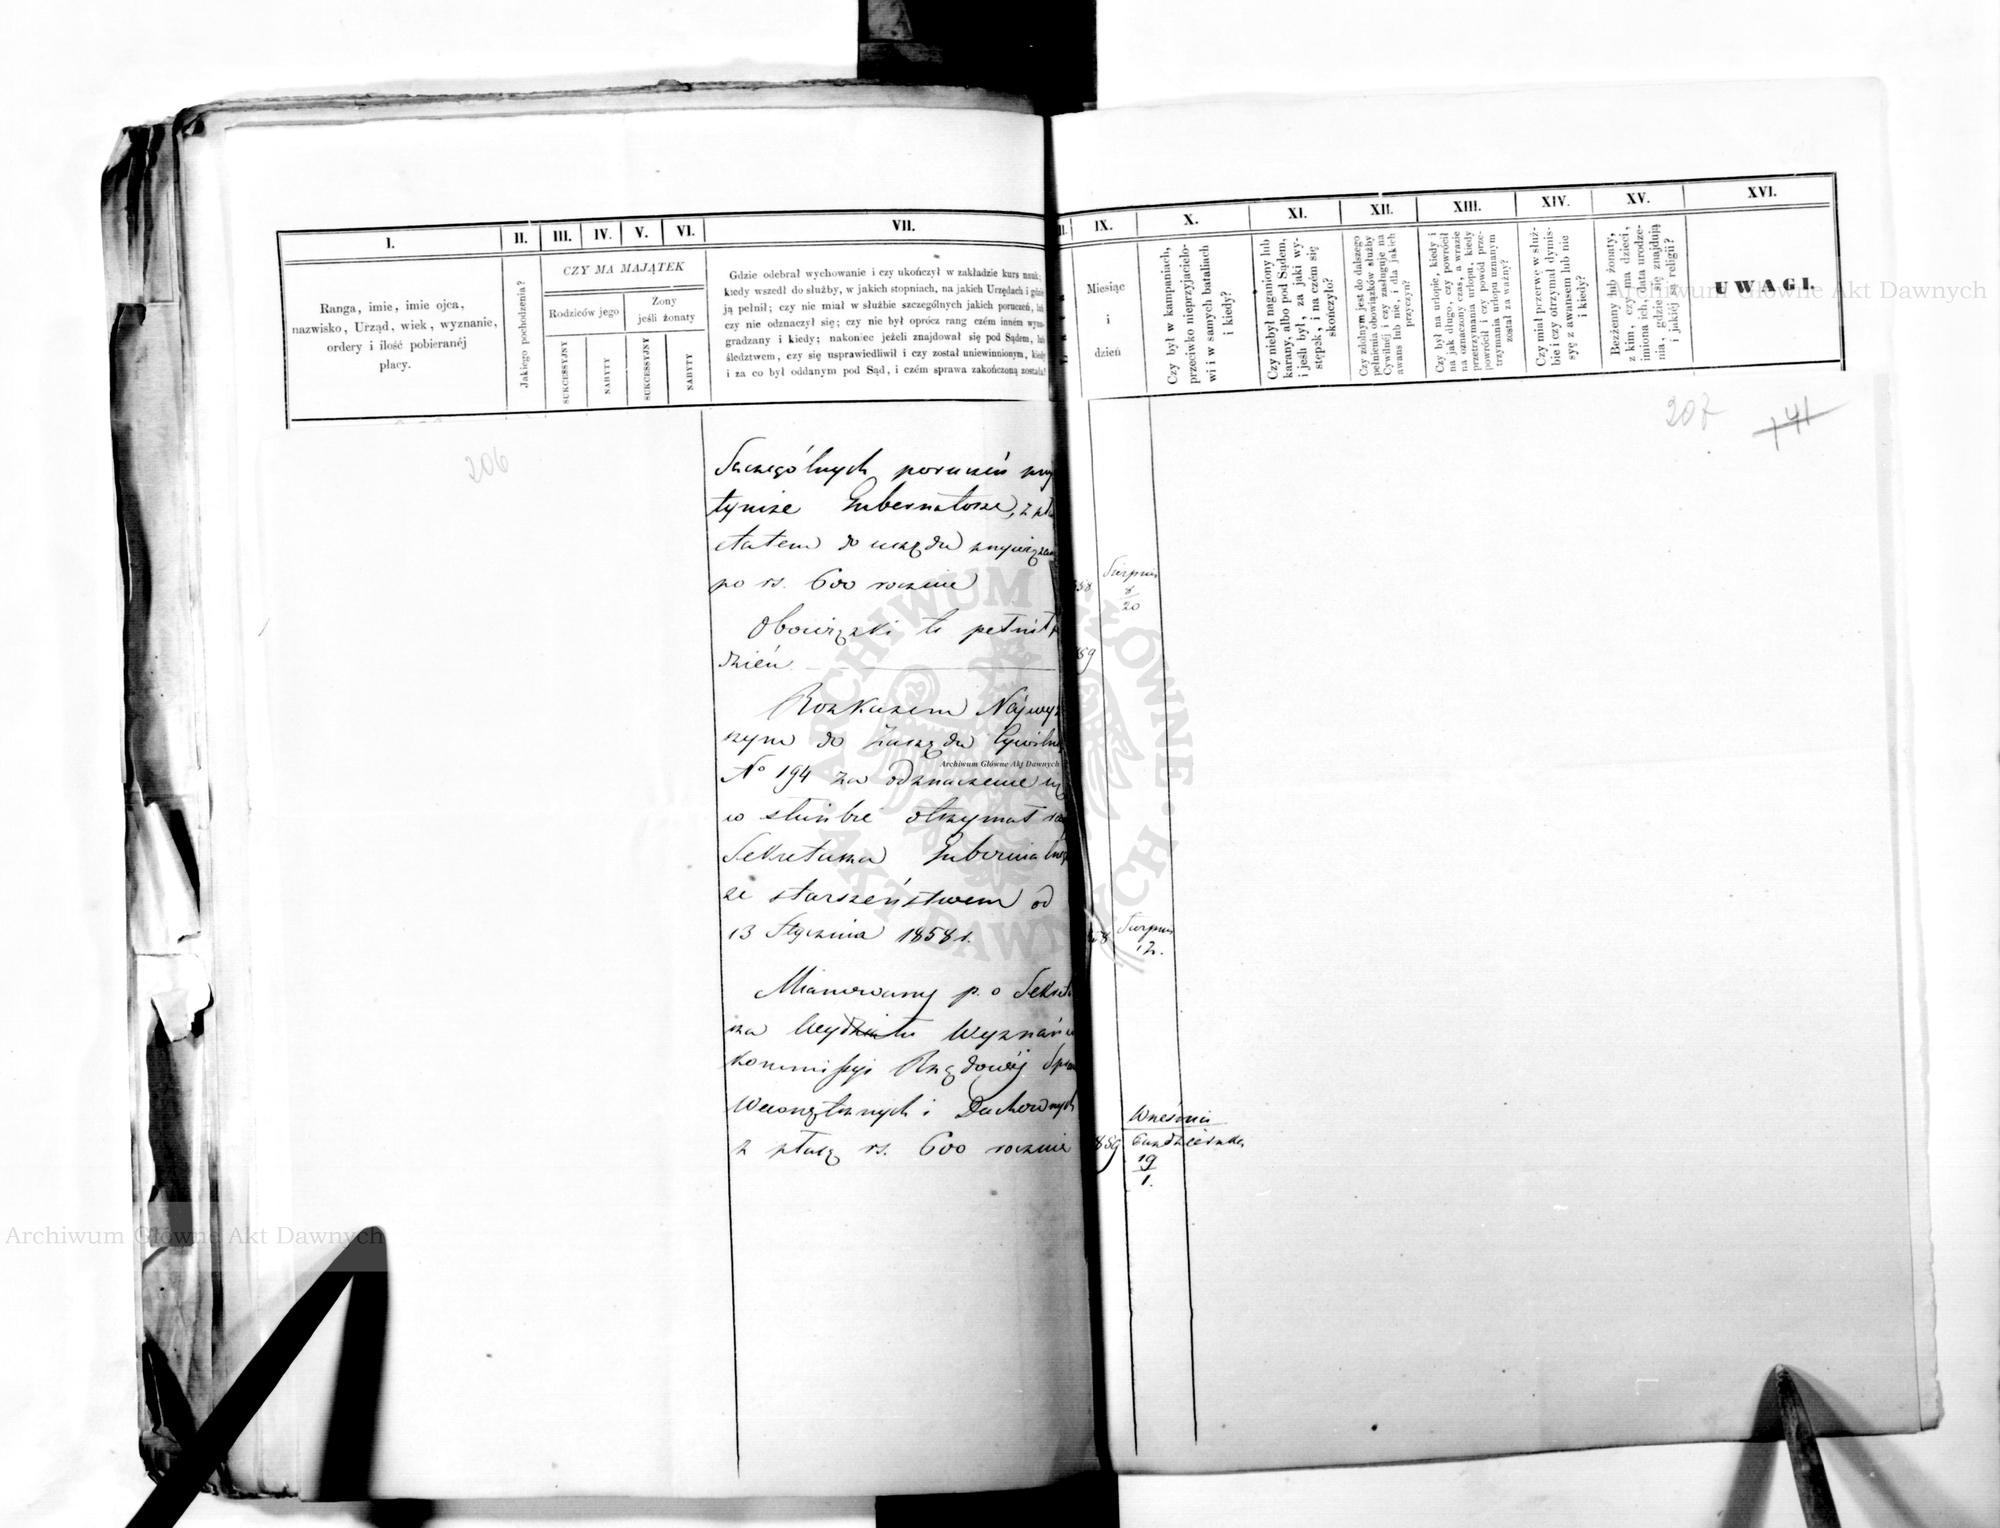 I.
II.
III.
IV.
V.
VI.
VII.
Ranga, imie, imie ojca,
nazwisko, Urząd, wiek, wyznanie,
ordery i ilość pobieranéj
płacy.
Jakiego pochodzenia?
CZY MA MAJĄTEK
Rodziców jego
Żony
jeśli żonaty
SUKCESSYJNY
NABYTY
SUKCESSYJNY
NABYTY
Gdzie odebrał wychowanie i czy ukończył w zakładzie kurs nauk;
kiedy wszedł do służby, w jakich stopniach, na jakich Urzędach i gdzie
ją pełnił; czy nie miał w służbie szczególnych jakich poruczeń, lub
czy nie odznaczył się; czy nie był oprócz rang czém inném wyna-
gradzany i kiedy; nakoniec jeżeli znajdował się pod Sądem, lub
śledztwem, czy się usprawiedliwił i czy został uniewinnionym, kiedy
i za co był oddanym pod Sąd, i czém sprawa zakończoną została?
206
Szczególnych poruczeń przy
tymże Gubernatorze, z
etatem do urzędu
po rs. 600 rocznie
Obowiązki te pełnił
dzień
Rozkazem Najwyż
szym do Zarządu Cywilne
No 194 za odznaczenie się
w służbie otrzymał
Sekretarza Gubernialne
ze starszeństwem od
13 Stycznia 1858 r.
Mianowany p. o Sekreta
rza Wydziału Wyznań w
Kommissyi Rządowéj Spraw
Wewnętrznych i Duchownych
z płacą rs. 600 rocznie
IX.
X.
XI.
XII.
XIII.
XIV.
XV.
XVI.
Miesiąc
i
dzień
Czy był w kampaniach,
przeciwko nieprzyjacielo-
wi i w samych bataliach
i kiedy?
Czy niebył naganiony lub
karany, albo pod Sądem,
i jeśli był, za jaki wy-
stępek, i na czém się
skończyło?
Czy zdolnym jest do dalszego
pełnienia obowiązków służby
Cywilnéj i czy zasługuje na
awans lub nie, i dla jakich
przyczyn?
Czy był na urlopie, kiedy i
na jak długo, czy powrócił
na oznaczony czas, a wrazie
przetrzymania urlopu, kiedy
powrócił i czy powód prze-
trzymania urlopu uznanym
został za ważny?
Czy miał przerwę w służ-
bie i czy otrzymał dymis-
syę z awansem lub nie
i kiedy?
Bezżenny lub żonaty,
z kim, czy ma dzieci,
imiona ich, data urodze-
nia, gdzie się znajdują
i jakiéj są religii?
UWAGI.
207
141
58
Sierpnia
8
20
59
58
Sierpnia
12.
859
Września
Października
19
1.
ARCHIWUM GŁÓWNE AKT DAWNYCH
Archiwum Główne Akt Dawnych
Archiwum Główne Akt Dawnych
Archiwum Główne Akt Dawnych